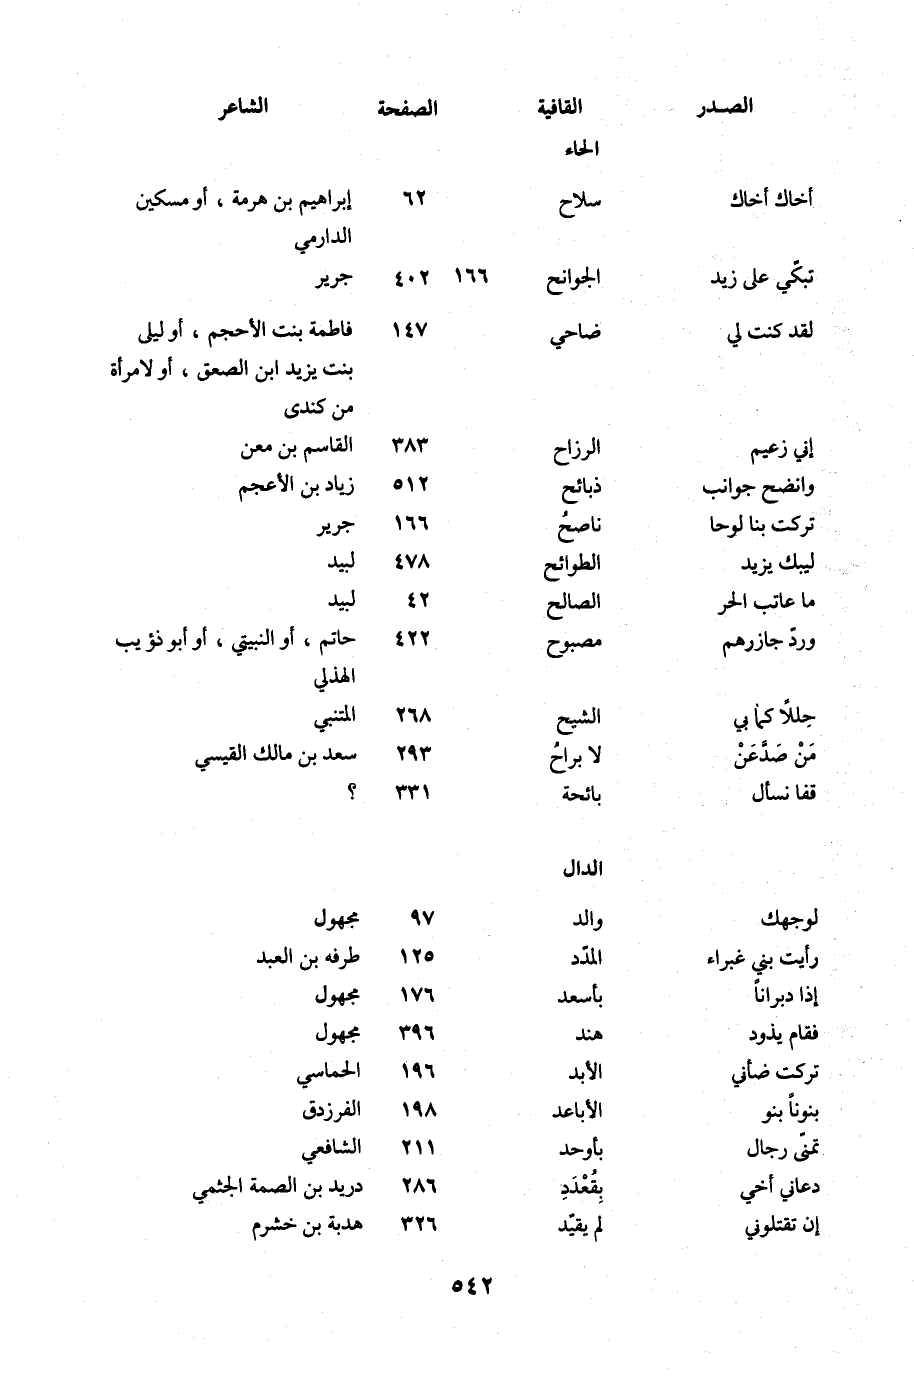 الصدر القافية الصفحة الشاعر
الحاء
أخاك أخاك سلاح ٦٢ إبراهيم بن هرمة ، أو مسكين
الدارمي
تبكّي على زيد الجوانح ١٦٦ ٤٠٢ جرير
لقد كنت لي ضاحي ١٤٧ فاطمة بنت الأحجم ، أو ليلى
بنت يزيد ابن الصعق ، أو لامرأة
من كندى
إني زعيم الرزاح ٣٨٣ القاسم بن معن
وانضح جوانب ذبائح ٥١٢ زياد بن الأعجم
تركت بنا لوحا ناصحُ ١٦٦ جرير
ليبك يزيد الطوائح ٤٧٨ لبيد
ما عاتب الحر الصالح ٤٢ لبيد
وردّ جازرهم مصبوح ٤٢٢ حاتم ، أو النبيتي ، أو أبو ذؤيب
الهذلي
جللًا كما بي الشيح ٢٦٨ المتنبي
مَنْ صَدَّ عَنْ لا براحُ ٢٩٣ سعد بن مالك القيسي
قفا نسأل بائحة ٣٣١ ؟
الدال
لوجهك والد ٩٧ مجهول
رأيت بني غبراء الممدّد ١٢٥ طرفه بن العبد
إذا دبراناً بأسعد ١٧٦ مجهول
فقام يذود هند ٣٩٦ مجهول
تركت ضأني الأبد ١٩٦ الحماسي
بنوناً بنو الأباعد ١٩٨ الفرزدق
تمنّى رجال بأوحد ٢١١ الشافعي
دعاني أخي بِقُعْدَدِ ٢٨٦ دريد بن الصمة الجثمي
إن تقتلوني لم يقيّد ٣٢٦ هدبة بن خشرم
٥٤٢